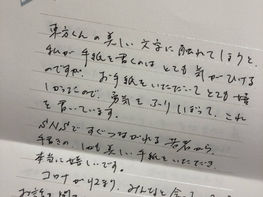 東方くんの美しい文字に触れてしまうと、
私が手紙を書くのはとても気がひける
のですが、お手紙をいただいてとても嬉
しかったので、勇気をふりしぼって、これ
を書いています。
SNSですぐつながれる若者から、
手書きの、しかも美しい手紙をいただき
本当に嬉しいです。
コロナが収まり、みんなと会